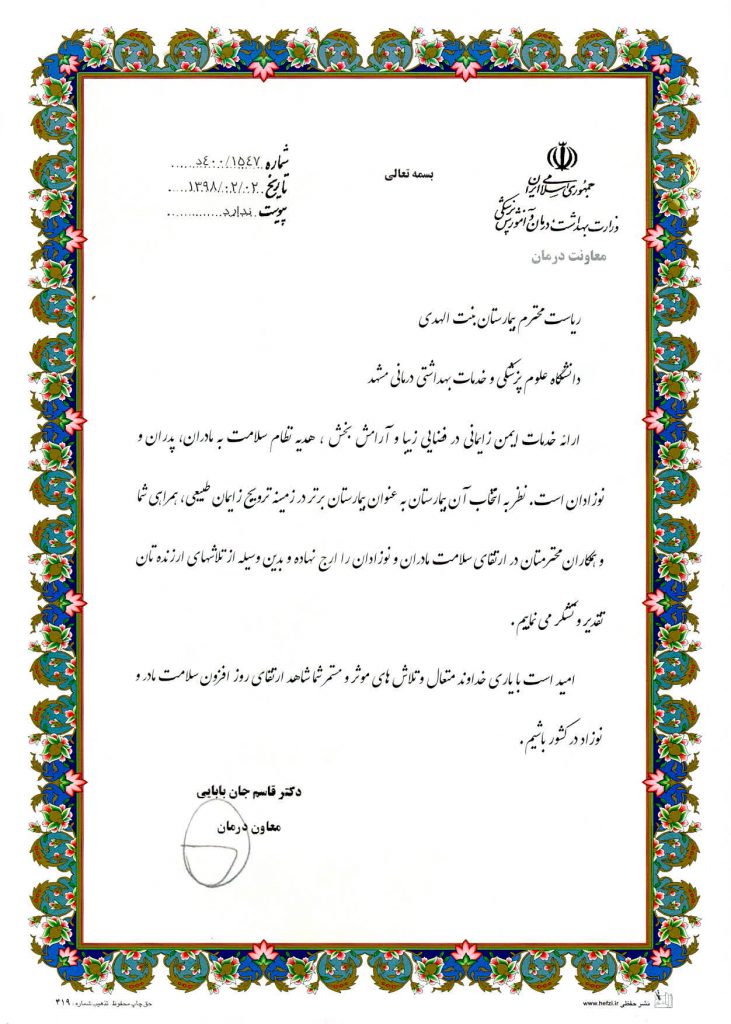 جمهوری اسلامی ایران
وزارت بهداشت، درمان و آموزش پزشکی
معاونت درمان
بسمه تعالی
شماره ۴۰۰/۱۵۴۷د
تاریخ ۱۳۹۸/۰۲/۰۲
پیوست ندارد
ریاست محترم بیمارستان بنت الهدی
دانشگاه علوم پزشکی و خدمات بهداشتی درمانی مشهد
ارائه خدمات ایمن زایمانی در فضایی زیبا و آرامش بخش ، هدیه نظام سلامت به مادران، پدران و
نوزادان است. نظر به انتخاب آن بیمارستان به عنوان بیمارستان برتر در زمینه ترویج زایمان طبیعی، همراهی شما
و همکاران محترمتان در ارتقای سلامت مادران و نوزادان را ارج نهاده و بدین وسیله از تلاشهای ارزنده تان
تقدیر و تشکر می نماییم .
امید است با یاری خداوند متعال و تلاش های موثر و مستمر شما شاهد ارتقای روز افزون سلامت مادر و
نوزاد در کشور باشیم .
دکتر قاسم جان بابایی
معاون درمان
نشر حفظی www.hefzi.ir
حق چاپ محفوظ تذهیب شماره ۳۱۹